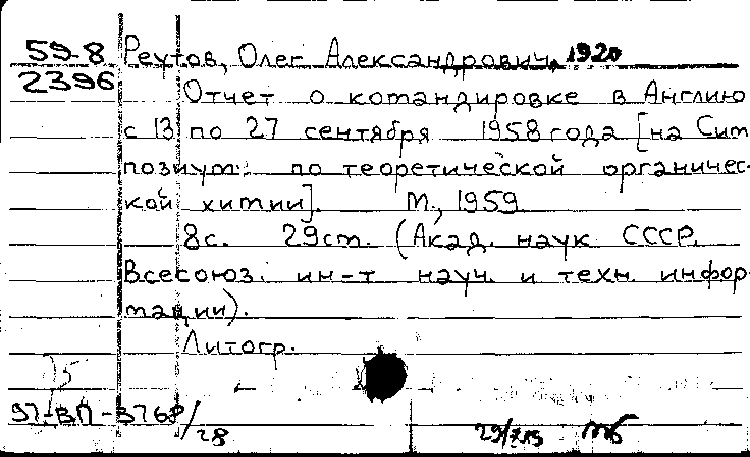 59-8 Реутов, Олег Александрович, 1920
2396 Отчет о командировке в Англию
с 13 по 27 сентября 1958 года [на Сим
позиум: по теоретической органичес-
кой химии]. М., 1959.
8с. 29см. (Акад. наук СССР.
Всесоюз. ин-т науч. и техн. инфор-
мации).
Литогр.
75
97-ВП-3768/28